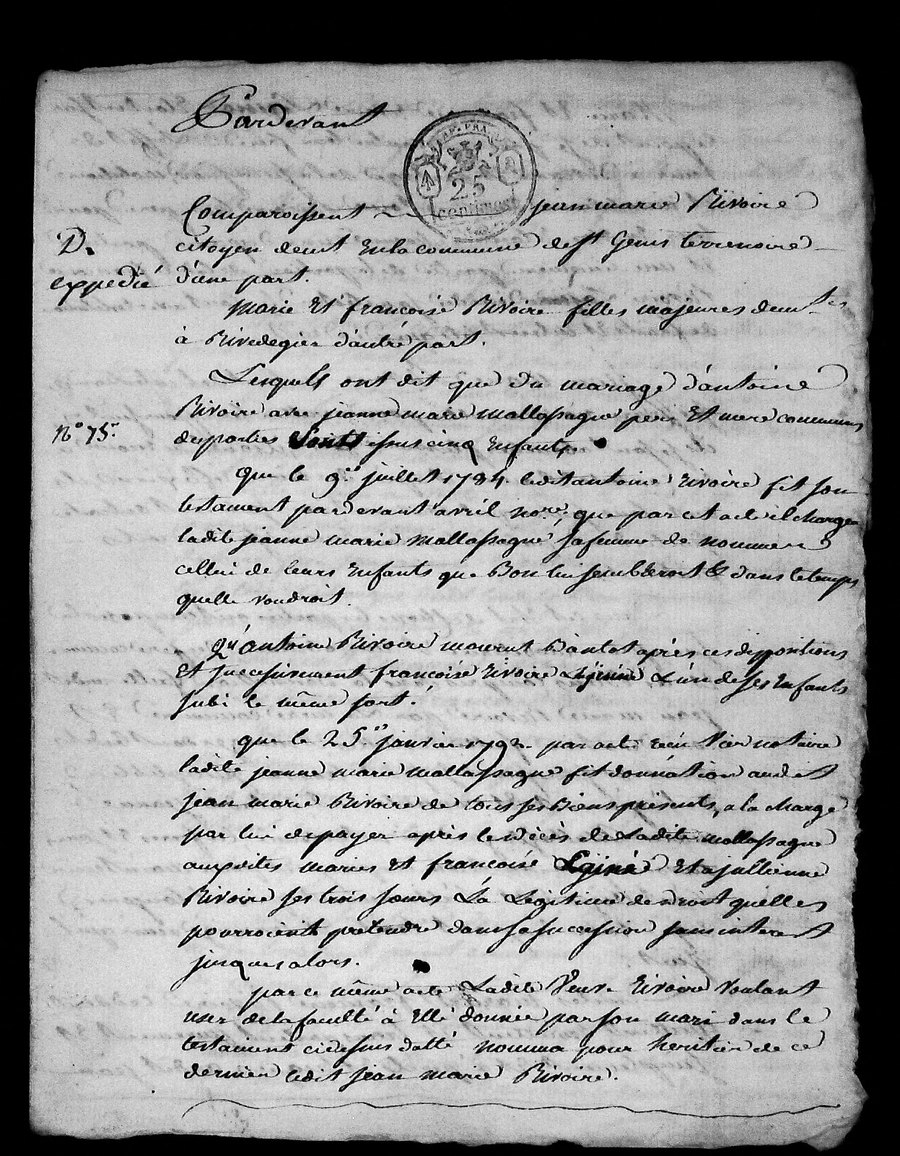 Pardevant
REP. FRA.
25
centimes
Comparoissent jean marie Rivoire
citoyen demt en la commune de st Genis terrenoire
D.
expedié
d'une part.
Marie Et francoise Rivoire filles majeures demtes
à Rivedegier d'autre part.
Lesquels ont dit que du mariage d'antoine
Rivoire avec jeanne marie mallassagne pere Et mere communs
N° 75.
des parties sont issus cinq Enfants.
que le 9e juillet 1784 ledit antoine Rivoire fit son
testament pardevant avril nore, que par cet acte il chargea
ladite jeanne marie mallassagne sa femme de nommer
cellui de leurs Enfants que Bon lui sembleroit & dans le temps
quelle voudroit.
Qu'antoine Rivoire mourut Bientot après ces dispositions
Et successivement francoise Rivoire L'un de ses Enfants
subi le même sort.
que le 25e janvier 1792 par acte reçu notaire
ladite jeanne marie mallassagne fit donnation audit
jean marie Rivoire de tous ses Biens présents, a la charge
par lui de payer après le décès de Ladite mallassagne
auxdites marie Et francoise Et a jullienne
Rivoire ses trois sœurs La Légitime de droit quelles
pourroient prétendre dans sa succession sans interest
jusques alors.
par ce même acte Ladite Veuve Rivoire Voulant
user de la faculté à Elle donnée par son mari dans le
testament cidessus datté nomma pour heritier de ce
dernier ledit jean marie Rivoire.